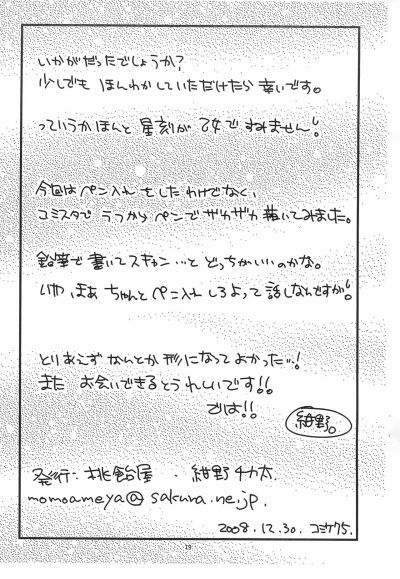 いかがだったでしょうか?
少しでも ほんわかしていただけたら 幸いです。
っていうかほんと 星刻が 乙女で すみません!
今回は ペン入れ をした わけでなく、
コミスタで うつから ペンで ザカザカ 描いてみました。
鉛筆で 書いて スキャン…と どっちがいいのかな。
いや まあ ちゃんと ペン入れ しろよって 話しなんですが!
とりあえず なんとか 形になって よかった…!
また お会いできるとうれしいです!!
では!!
紺野。
発行: 桃飴屋 . 紺野チカ太.
momoameya@sakura.ne.jp.
2008.12.30. コミケ75.
19